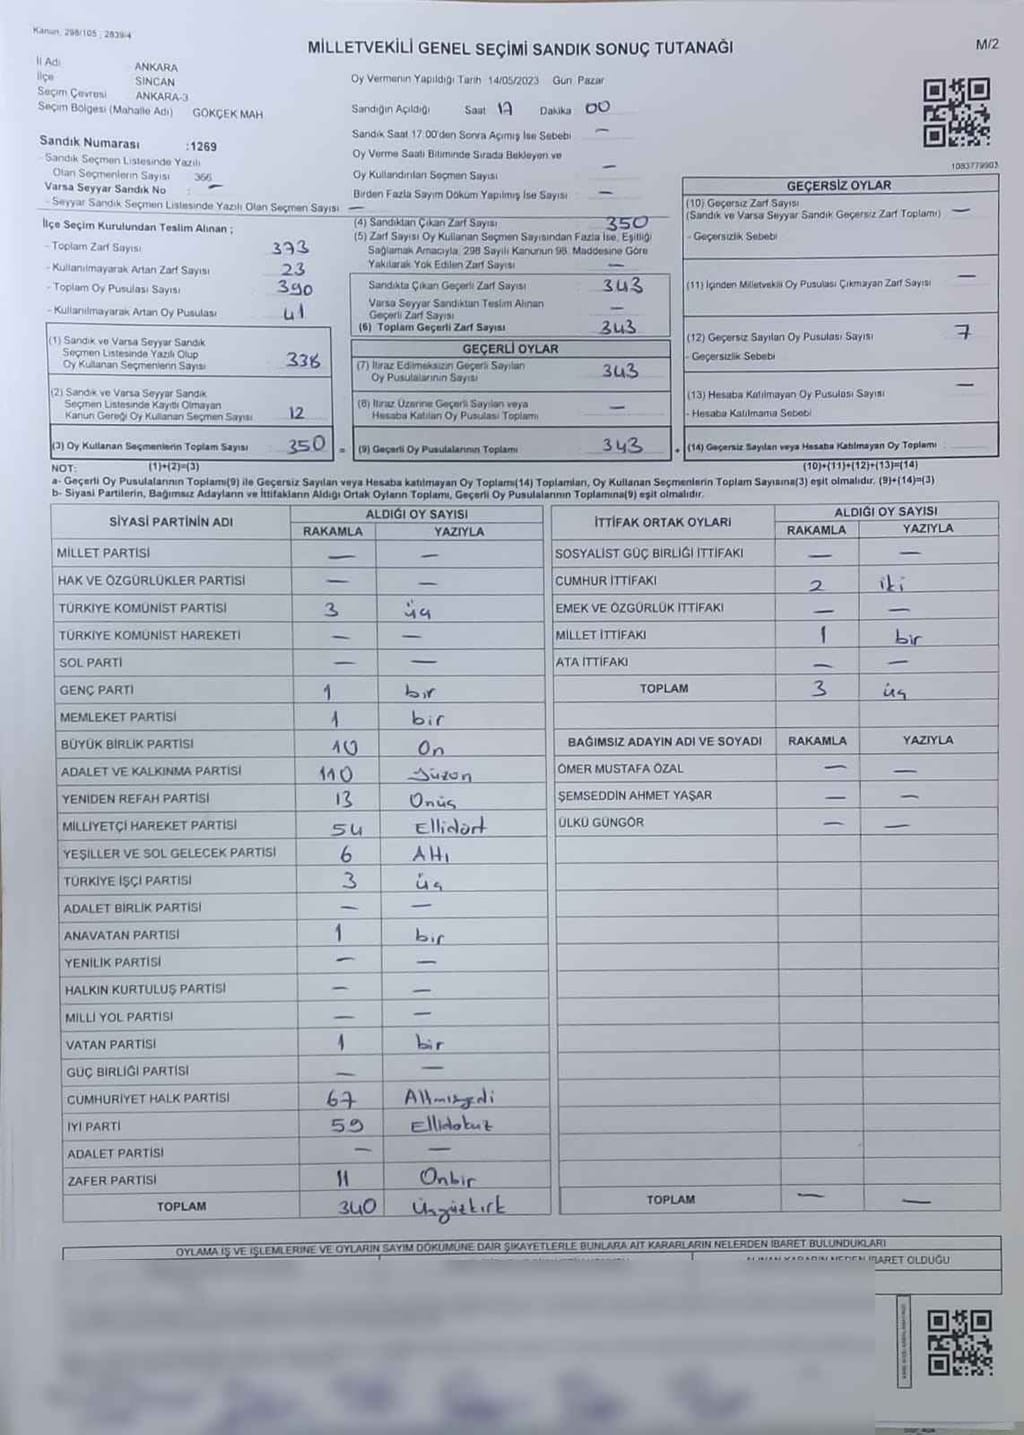 Kanun, 298/105 , 2839/4
MİLLETVEKİLİ GENEL SEÇİMİ SANDIK SONUÇ TUTANAĞI
M/2
İl Adı ANKARA
İlçe SİNCAN
Seçim Çevresi ANKARA-3
Seçim Bölgesi (Mahalle Adı) GÖKÇEK MAH
Sandık Numarası :1269
- Sandık Seçmen Listesinde Yazılı
Olan Seçmenlerin Sayısı 366
Varsa Seyyar Sandık No : —
- Seyyar Sandık Seçmen Listesinde Yazılı Olan Seçmen Sayısı —
Oy Vermenin Yapıldığı Tarih 14/05/2023 Gün Pazar
Sandığın Açıldığı Saat 17 Dakika 00
Sandık Saat 17:00'den Sonra Açımış İse Sebebi —
Oy Verme Saati Bitiminde Sırada Bekleyen ve
Oy Kullandırılan Seçmen Sayısı —
Birden Fazla Sayım Döküm Yapılmış İse Sayısı —
1083779903
İlçe Seçim Kurulundan Teslim Alınan ;
- Toplam Zarf Sayısı 373
- Kullanılmayarak Artan Zarf Sayısı 23
- Toplam Oy Pusulası Sayısı 390
- Kullanılmayarak Artan Oy Pusulası 41
(1) Sandık ve Varsa Seyyar Sandık
Seçmen Listesinde Yazılı Olup
Oy Kullanan Seçmenlerin Sayısı 338
(2) Sandık ve Varsa Seyyar Sandık
Seçmen Listesinde Kayıtlı Olmayan
Kanun Gereği Oy Kullanan Seçmen Sayısı 12
(3) Oy Kullanan Seçmenlerin Toplam Sayısı 350 =
(4) Sandıktan Çıkan Zarf Sayısı 350
(5) Zarf Sayısı Oy Kullanan Seçmen Sayısından Fazla İse, Eşitliği
Sağlamak Amacıyla, 298 Sayılı Kanunun 98. Maddesine Göre
Yakılarak Yok Edilen Zarf Sayısı —
Sandıkta Çıkan Geçerli Zarf Sayısı 343
Varsa Seyyar Sandıktan Teslim Alınan
Geçerli Zarf Sayısı —
(6) Toplam Geçerli Zarf Sayısı 343
GEÇERLİ OYLAR
(7) İtiraz Edilmeksizin Geçerli Sayılan
Oy Pusulalarının Sayısı 343
(8) İtiraz Üzerine Geçerli Sayılan veya
Hesaba Katılan Oy Pusulası Toplamı —
(9) Geçerli Oy Pusulalarının Toplamı 343 +
GEÇERSİZ OYLAR
(10) Geçersiz Zarf Sayısı —
(Sandık ve Varsa Seyyar Sandık Geçersiz Zarf Toplamı)
- Geçersizlik Sebebi
(11) İçinden Milletvekili Oy Pusulası Çıkmayan Zarf Sayısı —
(12) Geçersiz Sayılan Oy Pusulası Sayısı 7
- Geçersizlik Sebebi
(13) Hesaba Katılmayan Oy Pusulası Sayısı —
- Hesaba Katılmama Sebebi
(14) Geçersiz Sayılan veya Hesaba Katılmayan Oy Toplamı
NOT: (1)+(2)=(3) (10)+(11)+(12)+(13)=(14)
a- Geçerli Oy Pusulalarının Toplamı(9) ile Geçersiz Sayılan veya Hesaba katılmayan Oy Toplamı(14) Toplamları, Oy Kullanan Seçmenlerin Toplam Sayısına(3) eşit olmalıdır. (9)+(14)=(3)
b- Siyasi Partilerin, Bağımsız Adayların ve İttifakların Aldığı Ortak Oyların Toplamı, Geçerli Oy Pusulalarının Toplamına(9) eşit olmalıdır.
SİYASİ PARTİNİN ADI ALDIĞI OY SAYISI
RAKAMLA YAZIYLA
MİLLET PARTİSİ — —
HAK VE ÖZGÜRLÜKLER PARTİSİ — —
TÜRKİYE KOMÜNİST PARTİSİ 3 üç
TÜRKİYE KOMÜNİST HAREKETİ — —
SOL PARTİ — —
GENÇ PARTİ 1 bir
MEMLEKET PARTİSİ 1 bir
BÜYÜK BİRLİK PARTİSİ 10 On
ADALET VE KALKINMA PARTİSİ 110 Yüzon
YENİDEN REFAH PARTİSİ 13 Onüç
MİLLİYETÇİ HAREKET PARTİSİ 54 Ellidört
YEŞİLLER VE SOL GELECEK PARTİSİ 6 Altı
TÜRKİYE İŞÇİ PARTİSİ 3 üç
ADALET BİRLİK PARTİSİ — —
ANAVATAN PARTİSİ 1 bir
YENİLİK PARTİSİ — —
HALKIN KURTULUŞ PARTİSİ — —
MİLLİ YOL PARTİSİ — —
VATAN PARTİSİ 1 bir
GÜÇ BİRLİĞİ PARTİSİ — —
CUMHURİYET HALK PARTİSİ 67 Altmışyedi
İYİ PARTİ 59 Ellidokuz
ADALET PARTİSİ — —
ZAFER PARTİSİ 11 Onbir
TOPLAM 340 Üçyüzkırk
İTTİFAK ORTAK OYLARI ALDIĞI OY SAYISI
RAKAMLA YAZIYLA
SOSYALİST GÜÇ BİRLİĞİ İTTİFAKI — —
CUMHUR İTTİFAKI 2 iki
EMEK VE ÖZGÜRLÜK İTTİFAKI — —
MİLLET İTTİFAKI 1 bir
ATA İTTİFAKI — —
TOPLAM 3 üç
BAĞIMSIZ ADAYIN ADI VE SOYADI RAKAMLA YAZIYLA
ÖMER MUSTAFA ÖZAL — —
ŞEMSEDDİN AHMET YAŞAR — —
ÜLKÜ GÜNGÖR — —
TOPLAM — —
OYLAMA İŞ VE İŞLEMLERİNE VE OYLARIN SAYIM DÖKÜMÜNE DAİR ŞİKAYETLERLE BUNLARA AİT KARARLARIN NELERDEN İBARET BULUNDUKLARI
İBARET OLDUĞU